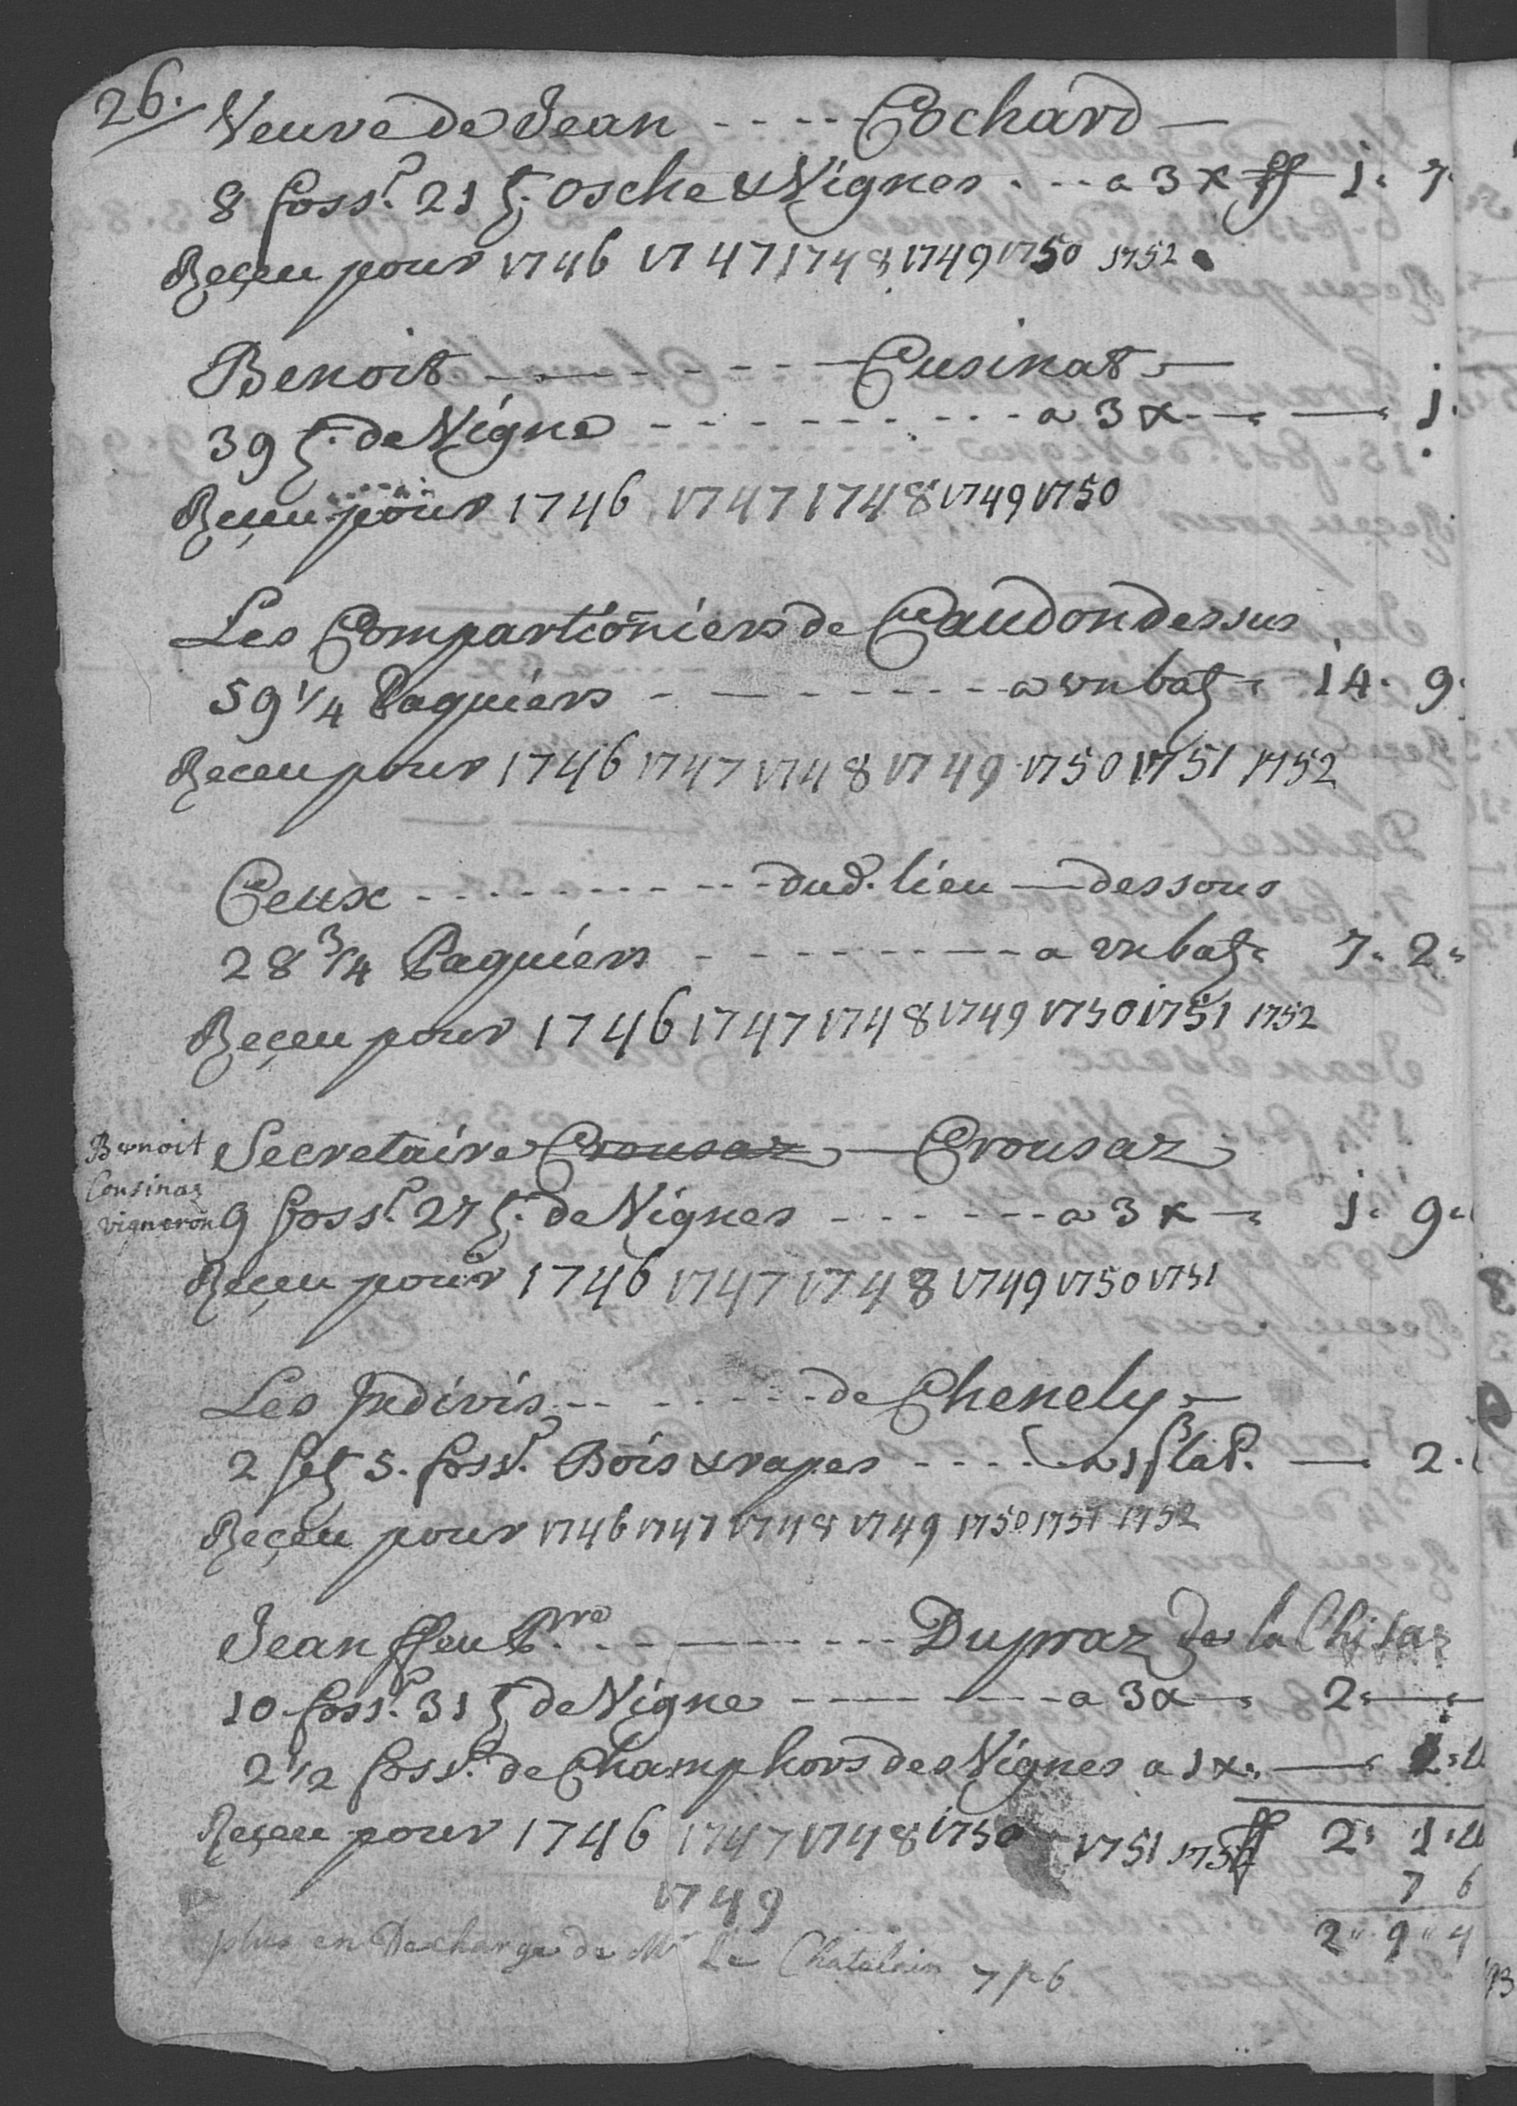 26.
Veuve de Jean - - - - - Cochard —
8 foss.r 21 t. osche & Vignes . - - - a 3 x ff 1. 7.
Reçeu pour 1746 1747 1748 1749 1750 1752
Benoit - - - - - - - - Cusinat —
39 t. de Vigne - - - - - - - - - - a 3 x — 1.
Reçeu pour 1746 1747 1748 1749 1750
Les Compartionniers de Caudon dessus
59 1/4 Paquiers - - - - - - - - a un batz 14. 9.
Receu pour 1746 1747 1748 1749 1750 1751 1752
Ceux - - - - - - - - - dud. lieu — dessous
28 3/4 Paquiers - - - - - - - - - a un batz 7. 2.
Reçeu pour 1746 1747 1748 1749 1750 1751 1752
Benoit
Cousinaz
vigneron
Secretaire Crousaz — Crousaz
9 foss.r 27 t. de Vignes - - - - - - - a 3 x — 1. 9.
Reçeu pour 1746 1747 1748 1749 1750 1751
Les Indivis - - - - - - - de Chenely —
2 5. foss.r Bois & rapes - - - - — 2.
Reçeu pour 1746 1747 1748 1749 1750 1751 1752
Jean ffeu P.rre - - - - - - - - Dupraz de la
10 foss.r 31 t de Vigne - - - - - - - - a 3 x — 2. —
2 1/2 foss.r de Champ hors des Vignes a 1 x. —
Reçeu pour 1746 1747 1748 1750 1751 ff 2. 1.
1749
7 6
2 " 9 " 4
plus en Decharge de Mr Le Chatelain 7 s 6